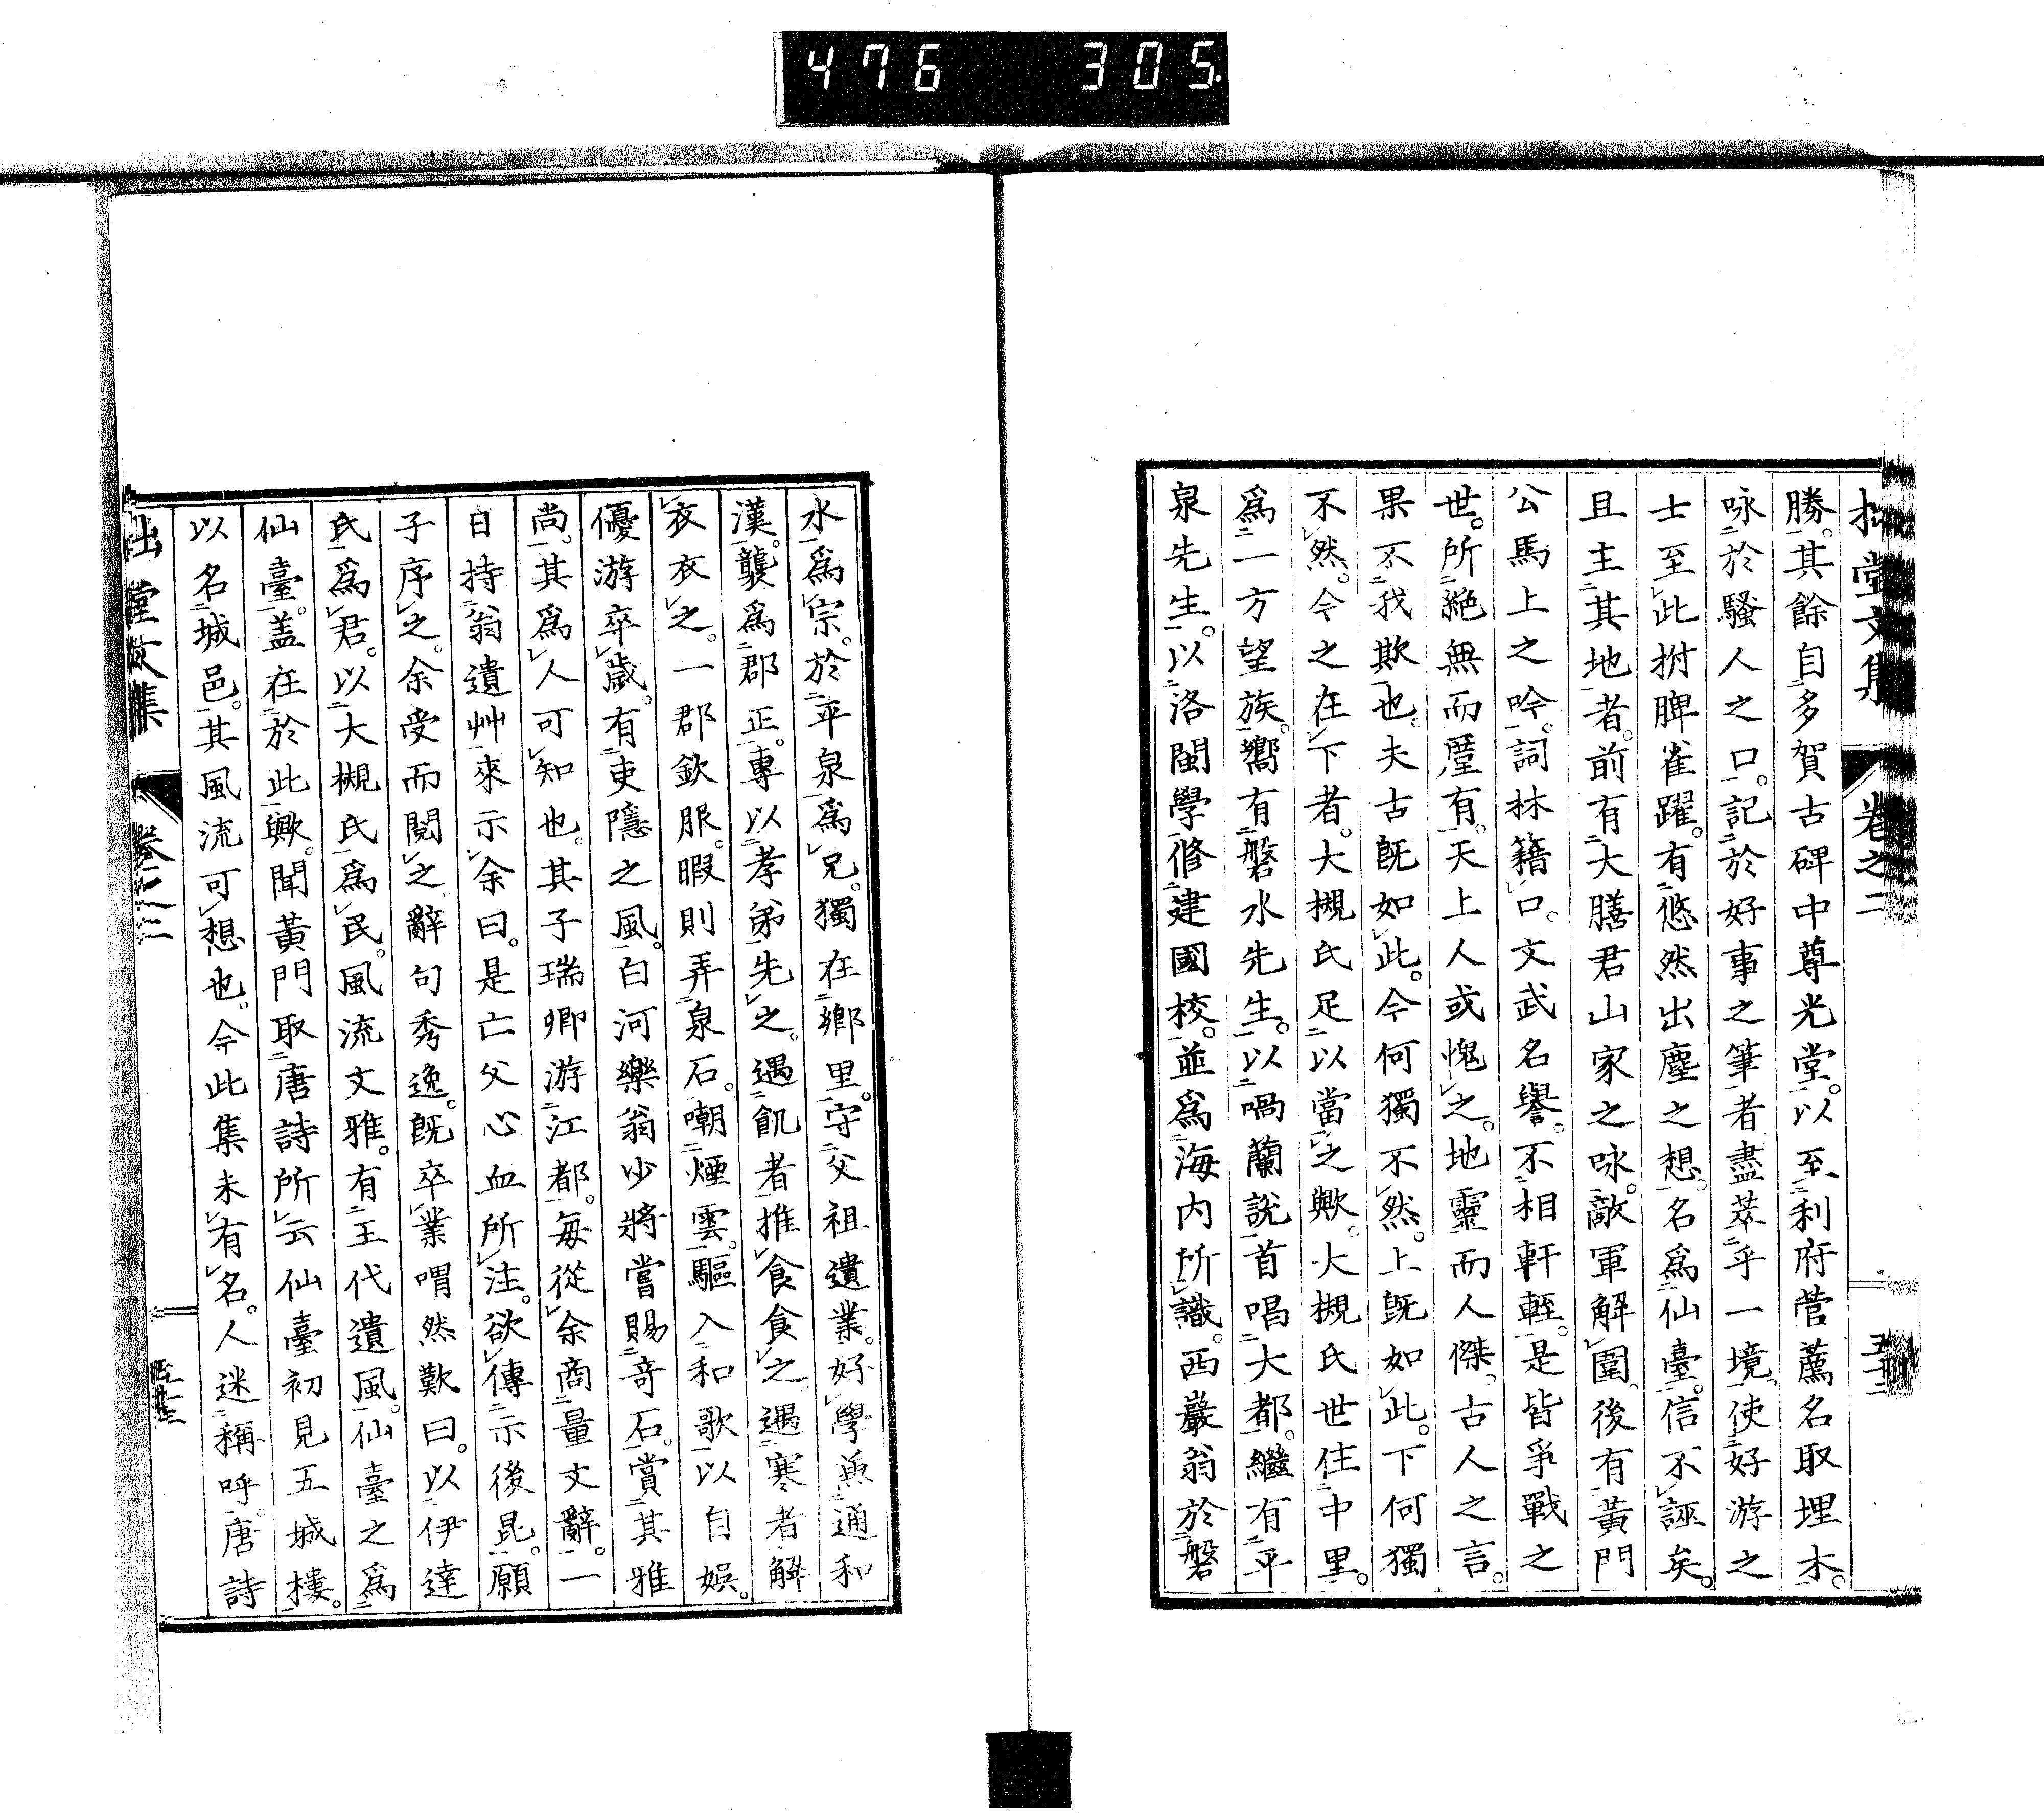 476 305
拙堂文集 卷之二
勝。其餘自多賀古碑中尊光堂。以至利府菅薦名取埋木。
咏於騷人之口。記於好事之筆者盡萃乎一境。使好游之
士至此拊脾雀躍。有悠然出塵之想。名爲仙臺。信不誣矣。
且主其地者。前有大膳君山家之咏。敵軍解圍。後有黃門
公馬上之吟。詞林籍口。文武名譽。不相軒輊。是皆爭戰之
世。所絕無而厪有。天上人或愧之。地靈而人傑。古人之言。
果不我欺也。夫古既如此。今何獨不然。上既如此。下何獨
不然。今之在下者。大槻氏足以當之歟。大槻氏世住中里。
爲一方望族。嚮有磐水先生。以喎蘭說首唱大都。繼有平
泉先生。以洛閩學修建國校。並爲海內所識。西巖翁於磐
水爲宗。於平泉爲兄。獨在鄉里。守父祖遺業。好學兼通和
漢。襲爲郡正。專以孝弟先之。遇飢者推食食之。遇寒者解
衣衣之。一郡欽服。暇則弄泉石。嘲煙雲。驅入和歌以自娛。
優游卒歲。有吏隱之風。白河樂翁少將嘗賜奇石。賞其雅
尚。其爲人可知也。其子瑞卿游江都。每從余商量文辭。一
日持翁遺艸來示余曰。是亡父心血所注。欲傳示後昆。願
子序之。余受而閱之。辭句秀逸。既卒業喟然歎曰。以伊達
氏爲君。以大槻氏爲民。風流文雅。有王代遺風。仙臺之爲
仙臺。盖在於此歟。聞黃門取唐詩所云仙臺初見五城樓。
以名城邑。其風流可想也。今此集未有名。人迷稱呼。唐詩
拙堂文集 卷之二